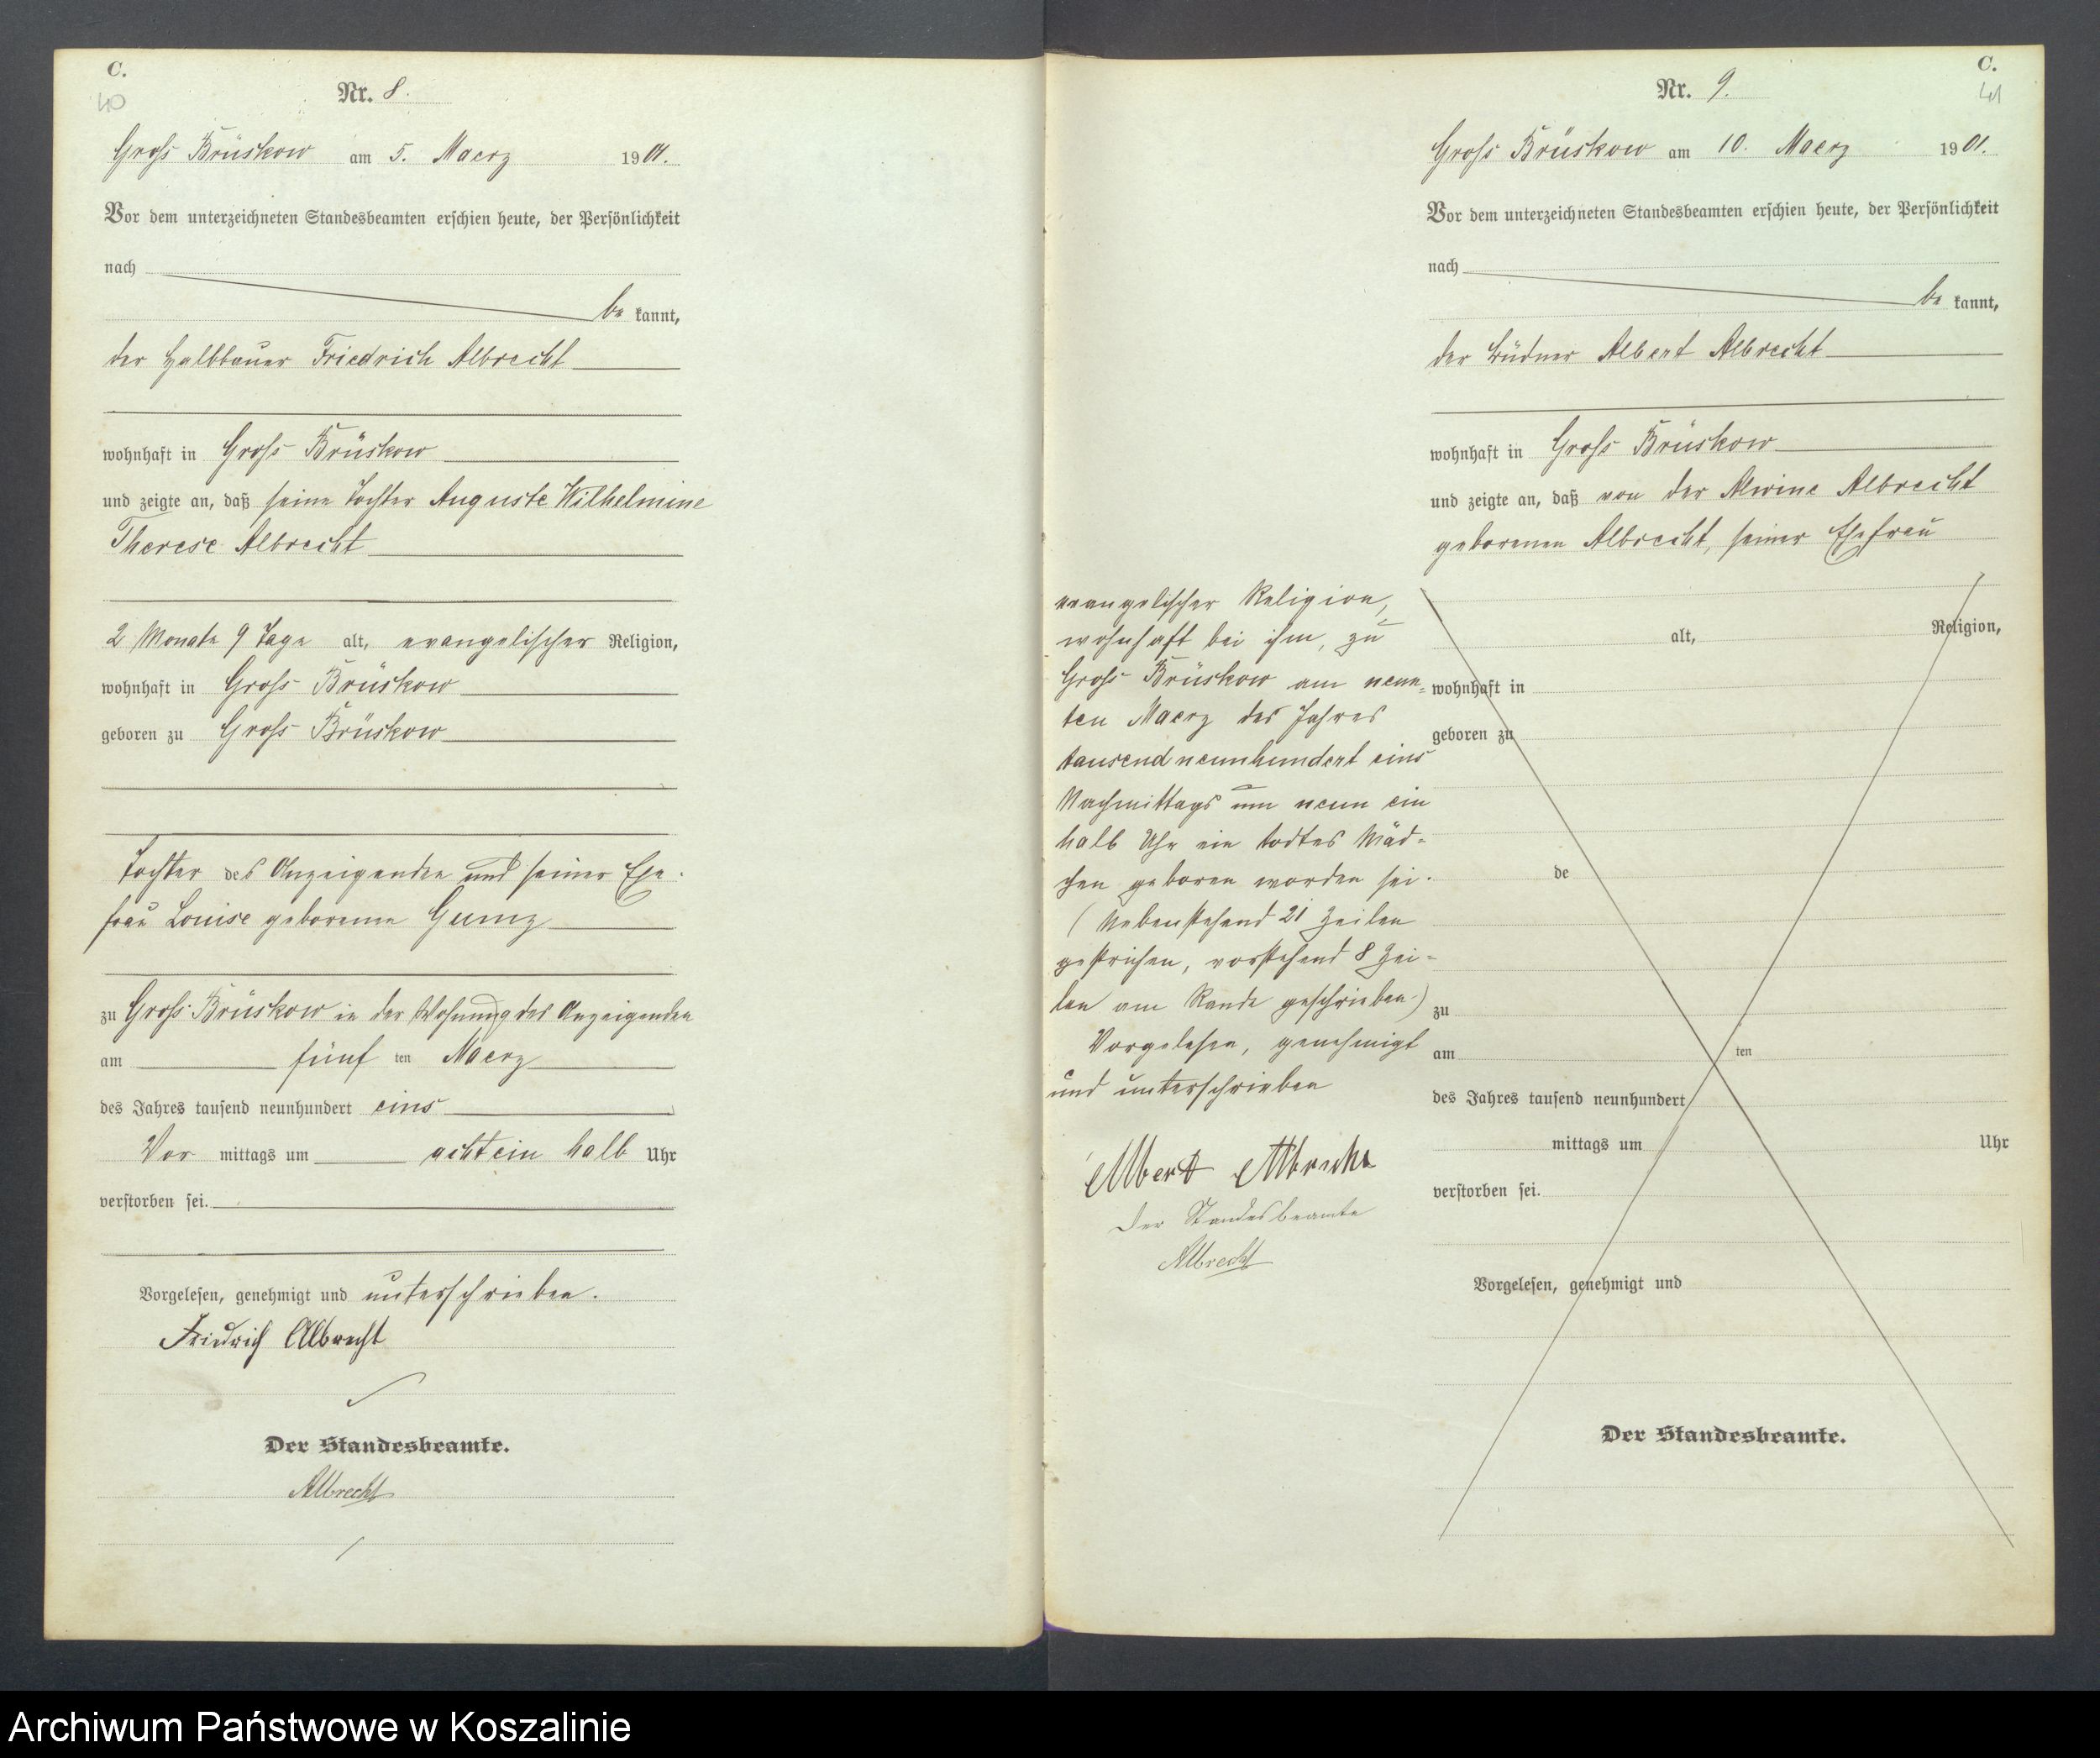 C.
40
Nr. 8.
Gross Brüskow am 5. Maerz 1901.
Vor dem unterzeichneten Standesbeamten erschien heute, der Persönlichkeit
nach
be kannt,
der Halbbauer Friedrich Albrecht
wohnhaft in Gross Brüskow
und zeigte an, daß seine Tochter Auguste Wilhelmine
Therese Albrecht
2 Monate 9 Tage alt, evangelischer Religion,
wohnhaft in Gross Brüskow
geboren zu Gross Brüskow
Tochter des Anzeigenden und seiner Ehe-
frau Louise geborenen Gumz
zu Gross Brüskow in der Wohnung des Anzeigenden
am fünf ten Maerz
des Jahres tausend neunhundert eins
Vor mittags um acht ein halb Uhr
verstorben sei.
Vorgelesen, genehmigt und unterschrieben.
Friedrich Albrecht
Der Standesbeamte.
Albrecht
C.
41
Nr. 9.
Gross Brüskow am 10. Maerz 1901.
Vor dem unterzeichneten Standesbeamten erschien heute, der Persönlichkeit
nach
be kannt,
der Büdner Albert Albrecht
wohnhaft in Gross Brüskow
und zeigte an, daß von der Alwine Albrecht
geborenen Albrecht, seiner Ehefrau
evangelischer Religion,
wohnhaft bei ihm, zu
Gross Brüskow am neun-
ten Maerz des Jahres
tausend neunhundert eins
Nachmittags um neun ein
halb Uhr ein todtes Mäd-
chen geboren worden sei.
(Nebenstehend 21 Zeilen
gestrichen, vorstehend 8 Zei-
len am Rande geschrieben)
Vorgelesen, genehmigt
und unterschrieben
Albert Albrecht
Der Standesbeamte
Albrecht
alt, Religion,
wohnhaft in
geboren zu
de
zu
am ten
des Jahres tausend neunhundert
mittags um Uhr
verstorben sei.
Vorgelesen, genehmigt und
Der Standesbeamte.
Archiwum Państwowe w Koszalinie